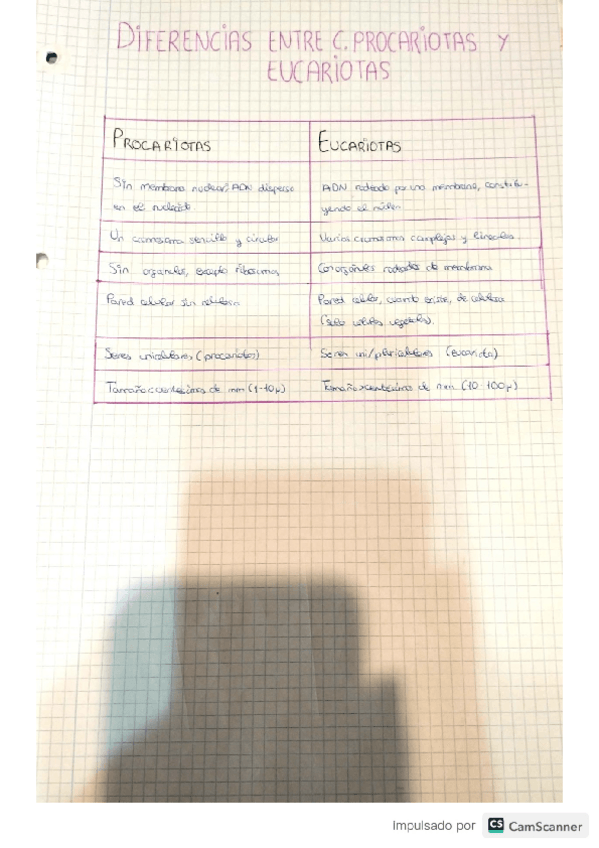 DIFERENCIAS ENTRE C. PROCARIOTAS Y
EUCARIOTAS
PROCARIOTAS
EUCARIOTAS
Sin membrana nuclear, ADN disperso
en el nucleoide
ADN rodeado por una membrana, constitu-
yendo el núcleo
Un cromosoma sencillo y circular
Varios cromosomas complejos y lineales
Sin organulos, excepto ribosomas
Con orgánulos rodeados de membrana
Pared celular sin celulosa
Pared celular, cuando existe, de celulosa
(solo células vegetales).
Seres unicelulares (procariotas)
Seres uni/pluricelulares (eucariota)
Tamaño<centésimas de mm (1-10μ)
Tamaño>centésimas de mm (10-100μ)
Impulsado por CS CamScanner